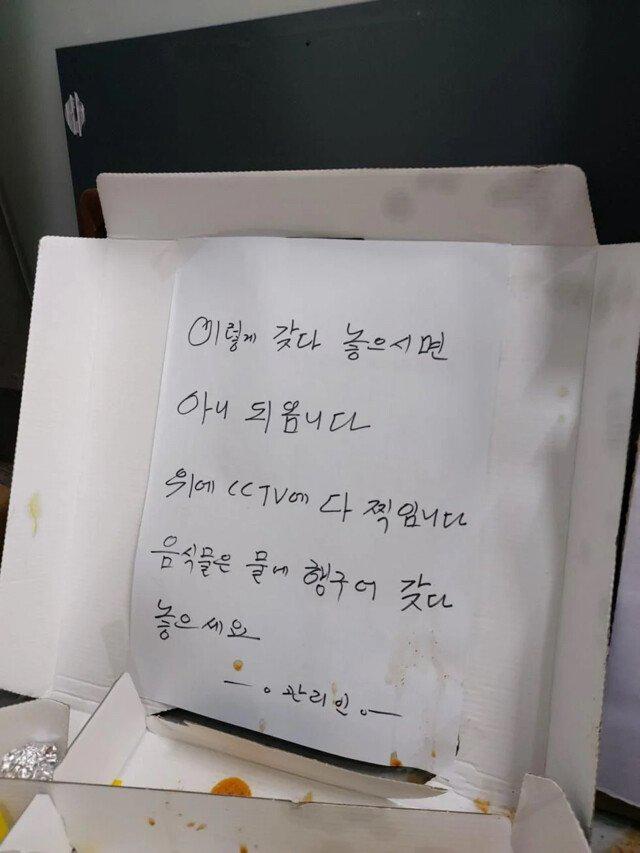 이렇게 갖다 놓으시면
아니 되옵니다
위에 CCTV에 다 찍힙니다
음식물은 물에 행구어 갖다
놓으세요
— 。관리인。—